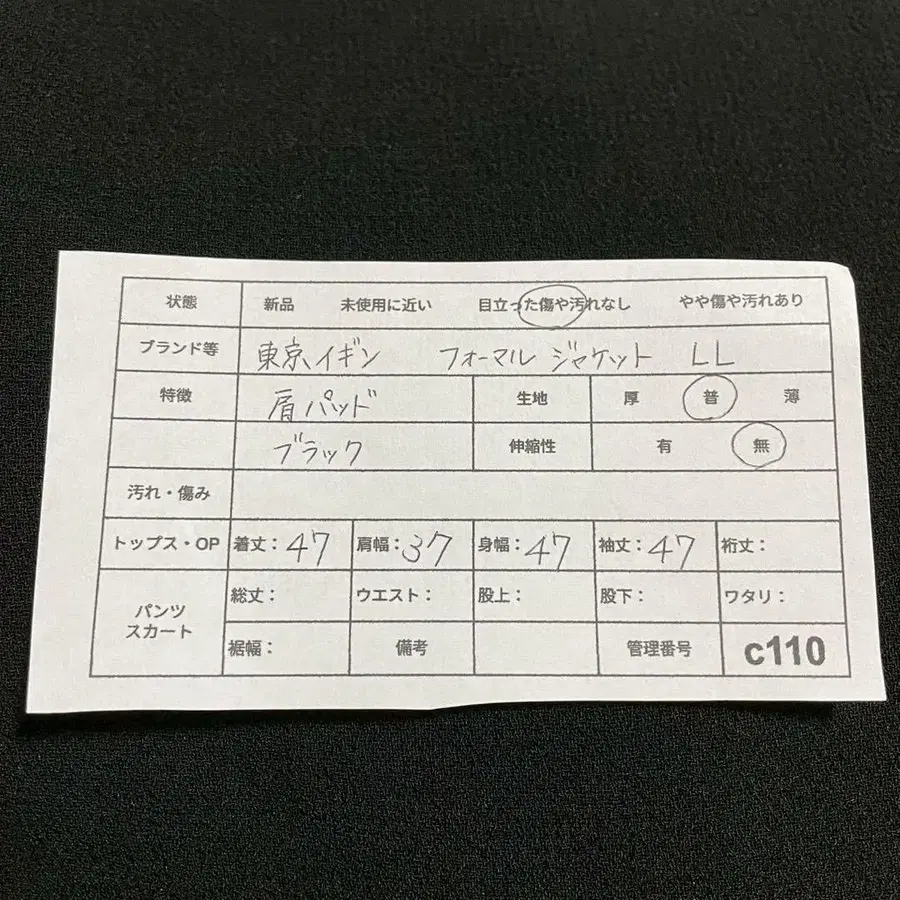 状態 新品 未使用に近い 目立った傷や汚れなし やや傷や汚れあり
ブランド等 東京イギン フォーマル ジャケット LL
特徴 肩パッド 生地 厚 普 薄
ブラック 伸縮性 有 無
汚れ・傷み
トップス・OP 着丈:47 肩幅:37 身幅:47 袖丈:47 裄丈:
パンツ スカート 総丈: ウエスト: 股上: 股下: ワタリ:
裾幅: 備考 管理番号 c110